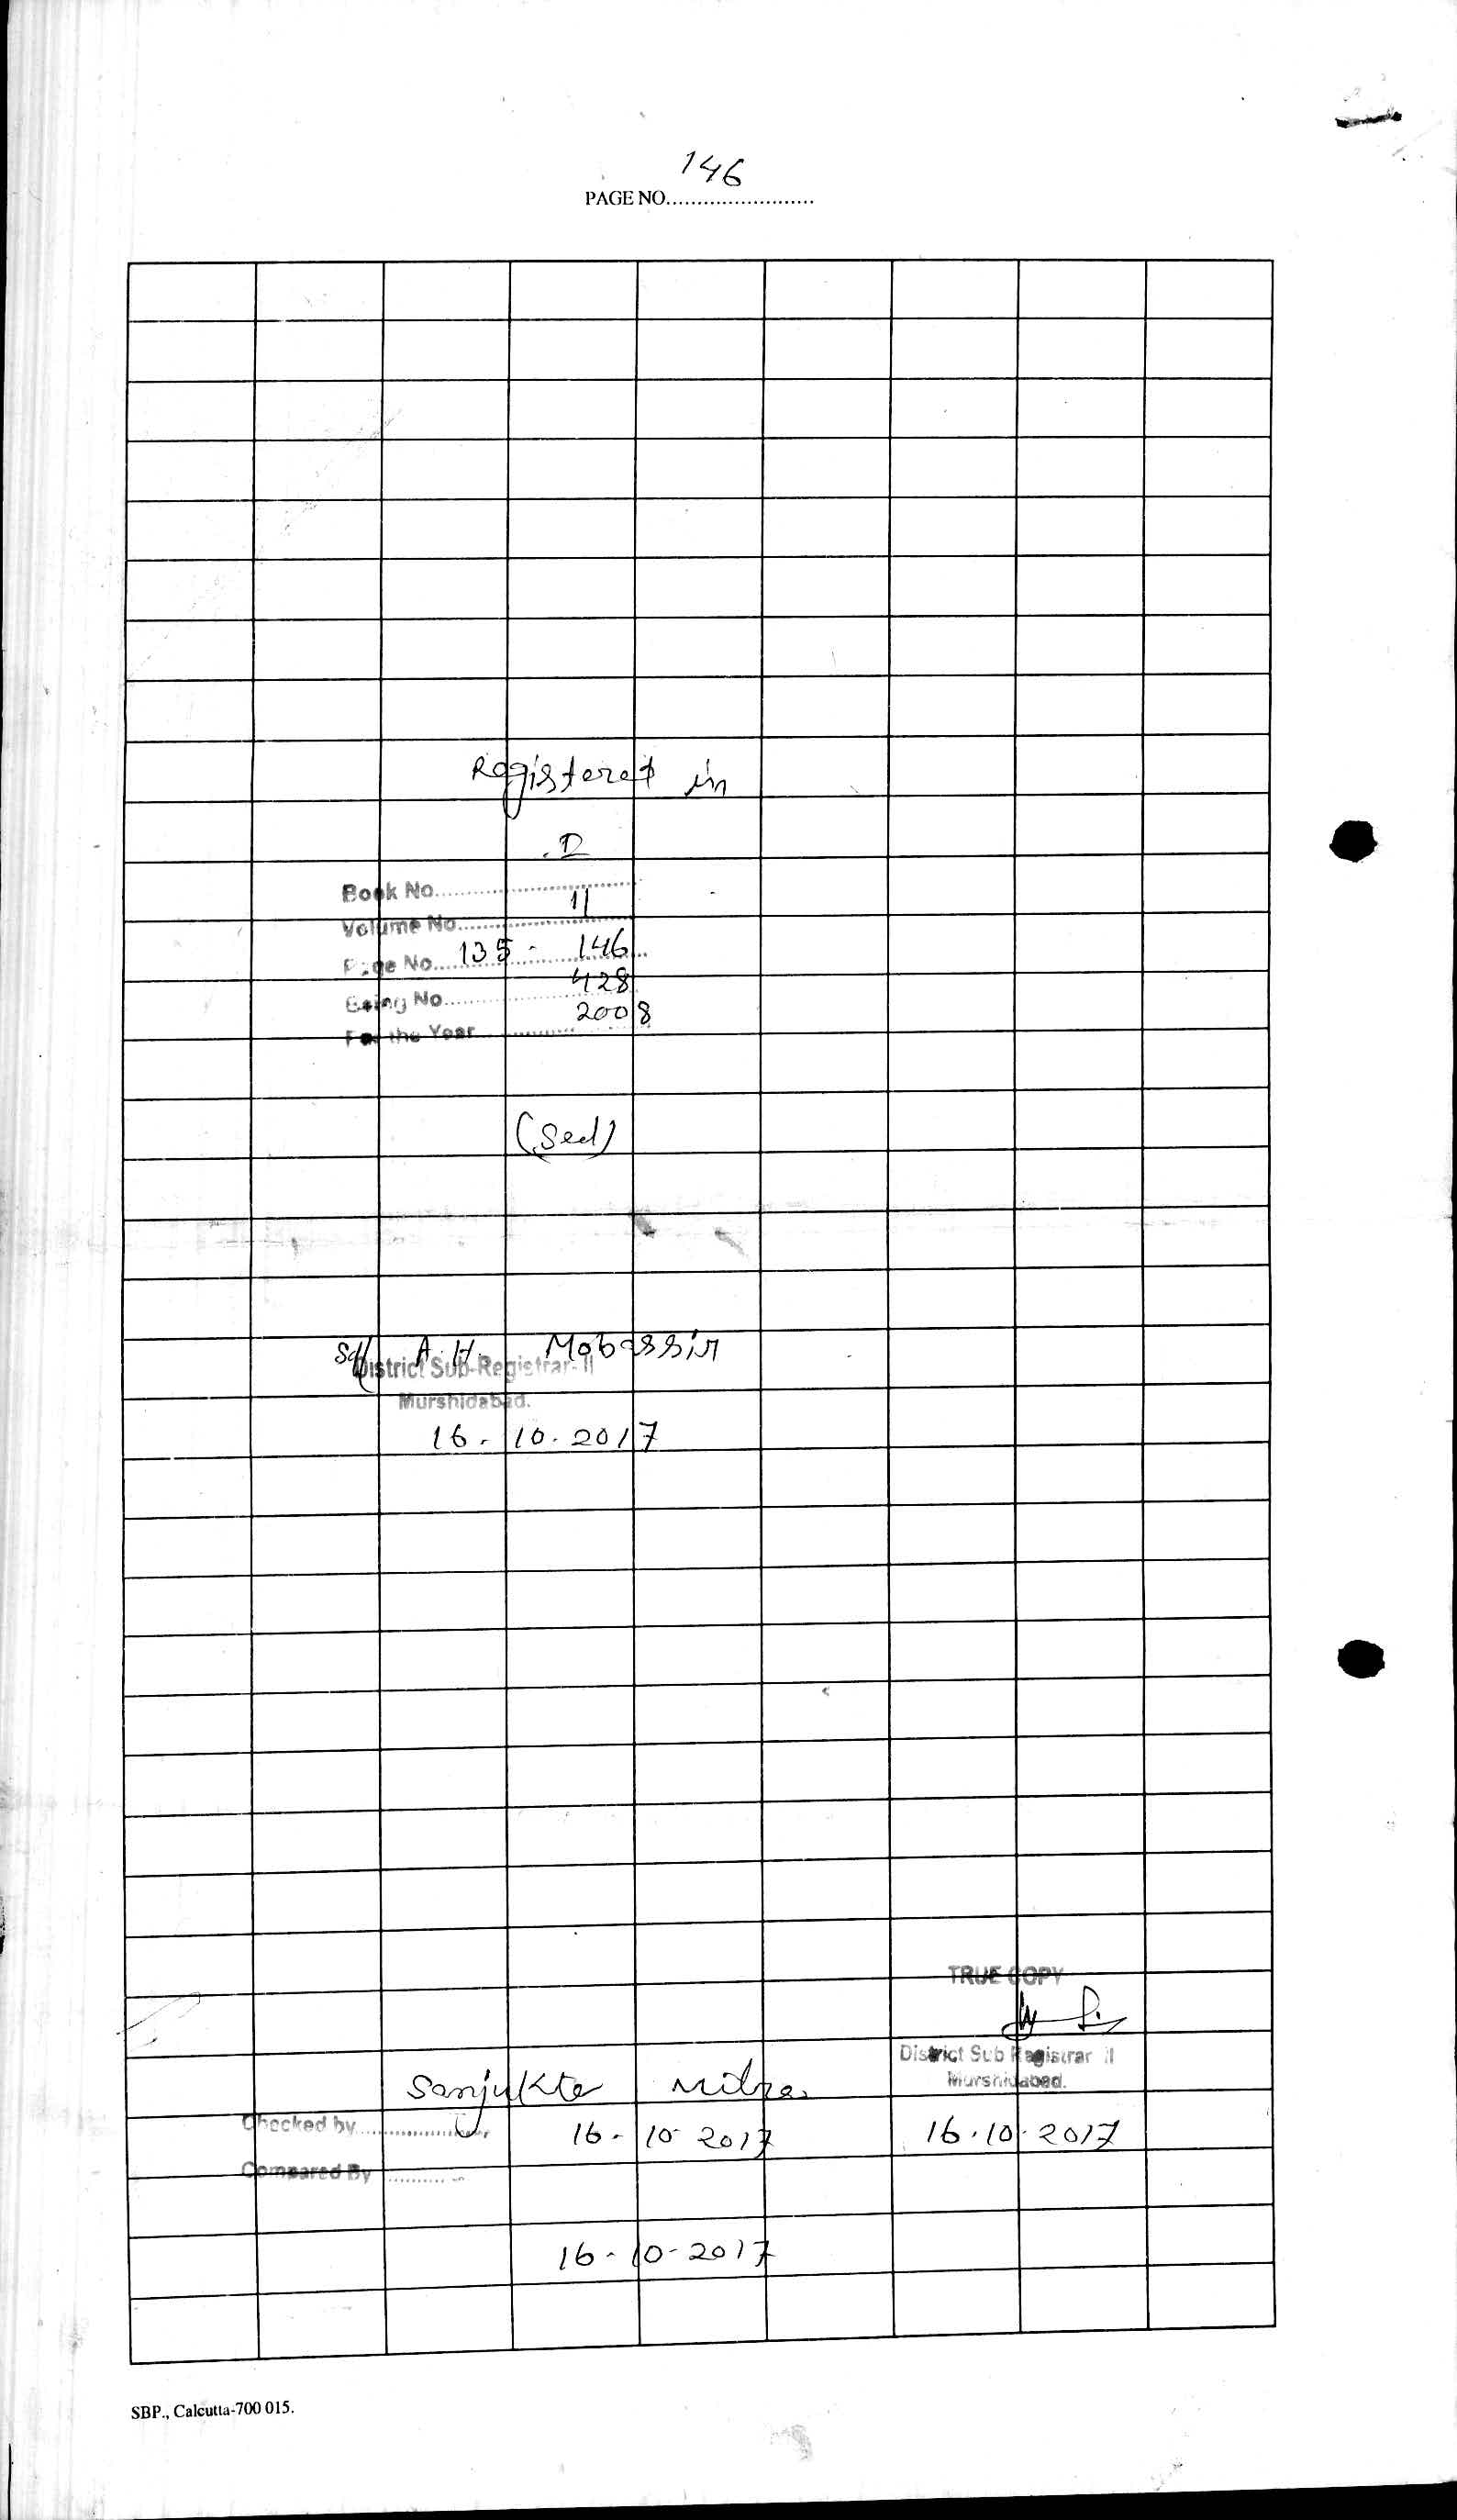 146
PAGE NO........................
Registered in
Book No. I
Volume No. 11
Page No. 135 - 146
Being No. 428
For the Year 2008
(Seal)
Sd/ A. H. Mobassir
District Sub-Registrar-II
Murshidabad.
16 - 10 - 2017
TRUE COPY
District Sub Registrar II
Murshidabad.
16.10.2017
Sanjukta Mitra
Checked by
16 - 10 - 2017
Compared By
16 - 10 - 2017
SBP., Calcutta-700 015.